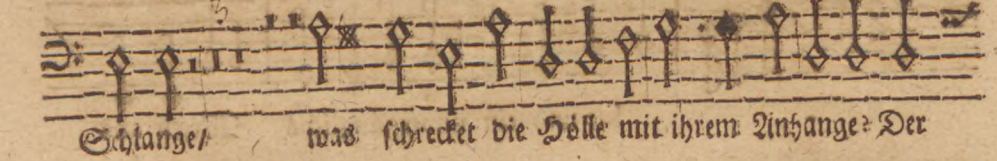 Schlange/ was ſchrecket die Hölle mit ihrem Anhange? Der